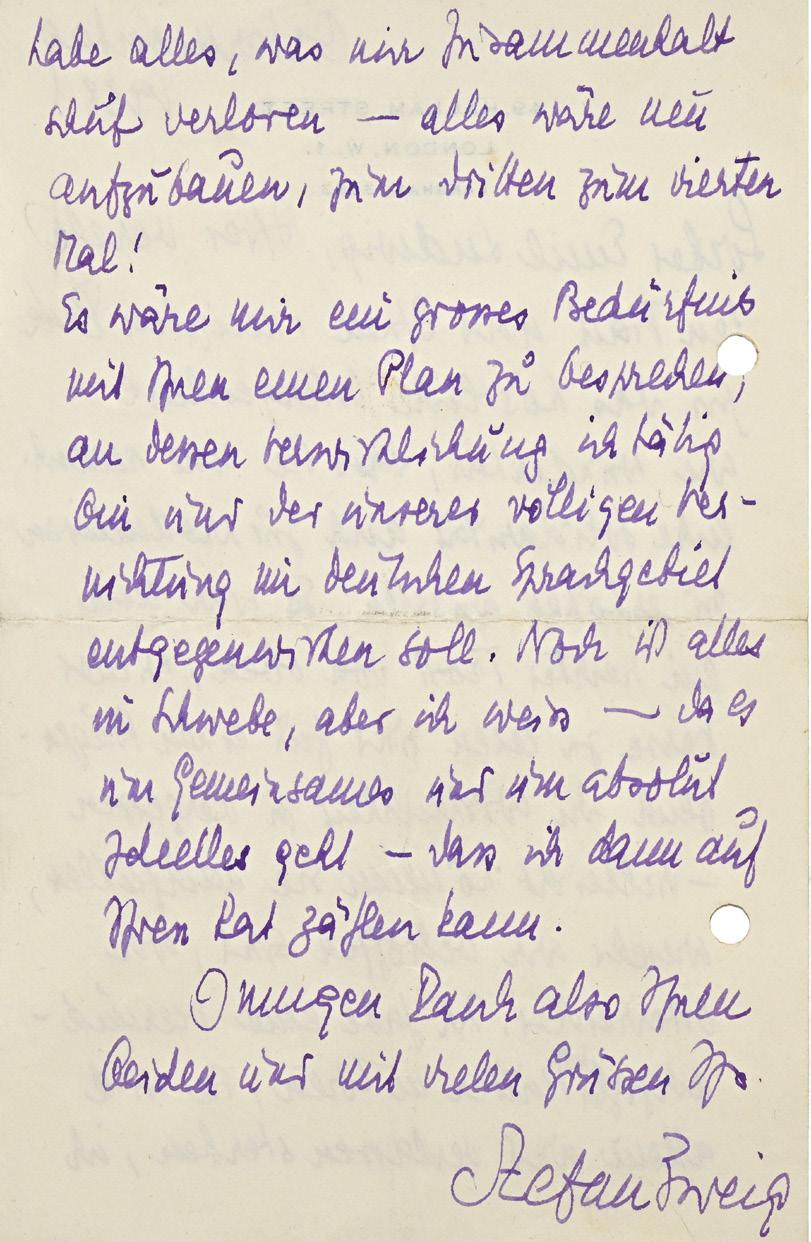 habe alles, was mir Zusammenhalt
schuf verloren — alles wäre neu
aufzubauen, zum dritten zum vierten
Mal!
Es wäre mir ein grosses Bedürfnis
mit Ihnen einen Plan zu besprechen,
an dessen Verwirklichung ich tätig
bin und der unserer völligen Ver-
nichtung im deutschen Sprachgebiet
entgegenwirken soll. Noch ist alles
in Schwebe, aber ich weiss — da es
um Gemeinsames und um absolut
Ideelles geht — dass ich dann auf
Ihren Rat zählen kann.
Innigen Dank also Ihnen
beiden und mit vielen Grüssen Ihr
Stefan Zweig